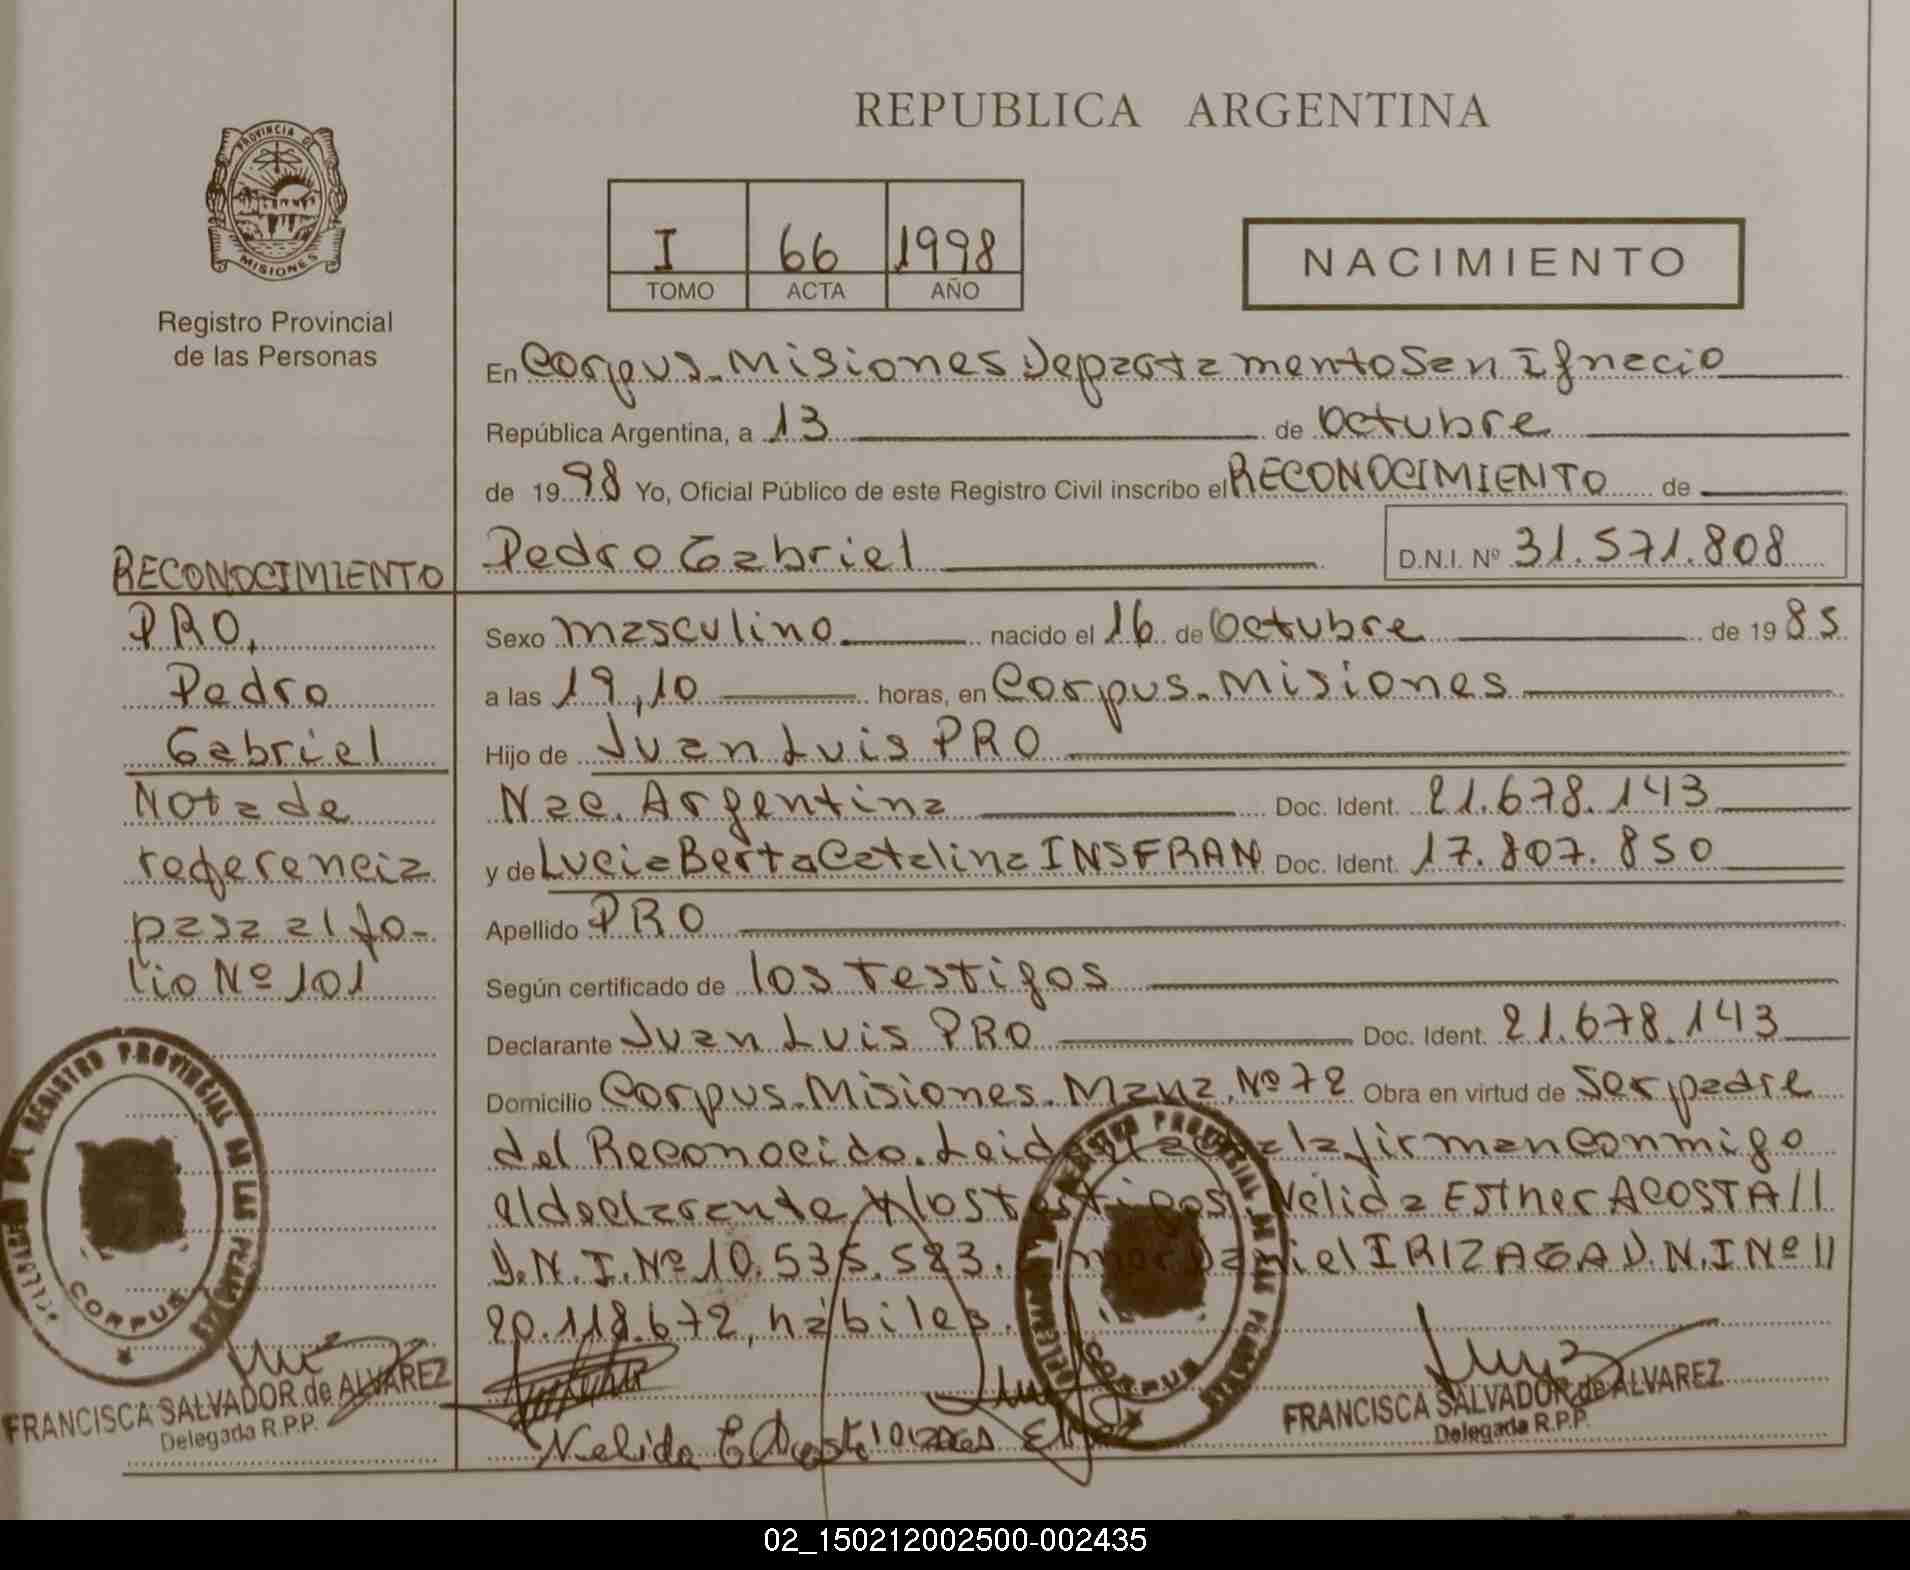 REPUBLICA ARGENTINA
PROVINCIA DE
MISIONES
Registro Provincial
de las Personas
I 66 1998
TOMO ACTA AÑO
NACIMIENTO
En Corpus-Misiones Departamento San Ignacio
República Argentina, a 13 de Octubre
de 1998 Yo, Oficial Público de este Registro Civil inscribo el RECONOCIMIENTO de
Pedro Gabriel D.N.I. Nº 31.571.808
RECONOCIMIENTO
PRO,
Pedro
Gabriel
Nota de
referencia
pasa al fo-
lio Nº 101
Sexo masculino nacido el 16 de Octubre de 1985
a las 19,10 horas, en Corpus-Misiones
Hijo de Juan Luis PRO
Nac. Argentina Doc. Ident. 21.678.143
y de Lucia Berta Catalina INSFRAN Doc. Ident. 17.807.850
Apellido PRO
Según certificado de los testigos
Declarante Juan Luis PRO Doc. Ident. 21.678.143
Domicilio Corpus-Misiones. Manz. Nº 72 Obra en virtud de Ser padre
del Reconocido. Leida el acta la firman conmigo
el declarante y los testigos, Nelida Esther ACOSTA//
D.N.I. Nº 10.535.523. Daniel IRIZAGA D.N.I Nº //
20.118.672, hábiles.
REGISTRO PROVINCIAL DE LAS PERSONAS
CORPUS
FRANCISCA SALVADOR de ALVAREZ
Delegada R.P.P.
REGISTRO PROVINCIAL DE LAS PERSONAS
CORPUS
Nelida E Acosta
FRANCISCA SALVADOR de ALVAREZ
Delegada R.P.P.
02_150212002500-002435